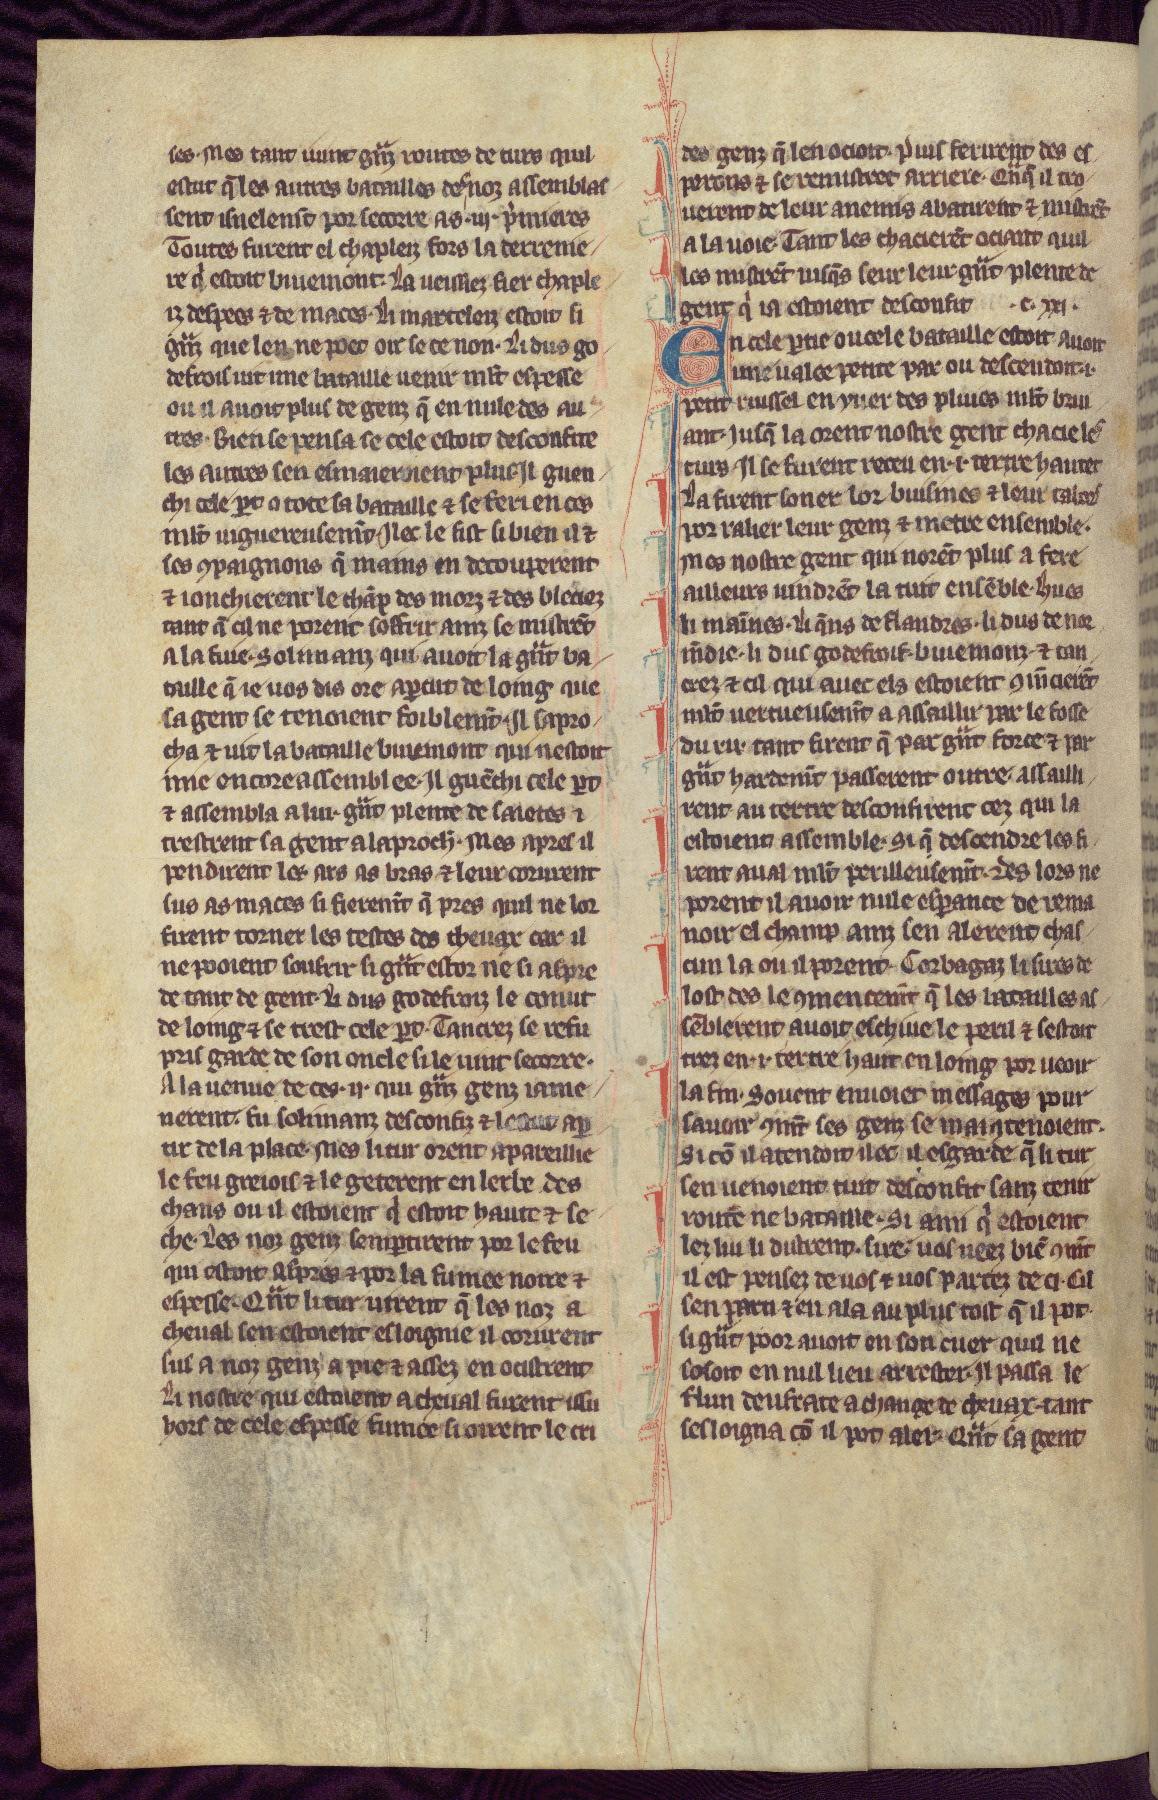 ses. Mes tant vint gñz routes de turs quil
estut q̃ les autres batailles des noz assemblas
sent isnelemt̃ por secorre as .iij. p̃mieres
Toutes furent el chapleiz fors la derrenie
re q̾ estoit buiemont. La veissiez fier chaple
iz despees ⁊ de maces. Li marteleiz estoit si
gñz que len ne poet oir se ce non. Li dus go
defrois vit une bataille venir ml̃t espesse
ou il avoit plus de genz q̃ en nule des au
tres. Bien se pensa se cele estoit desconfite
les autres sen esmaieroient plus. Il guen
chi cele p̃t o tote sa bataille ⁊ se feri en ces
ml̃t viguereusemt̃. Ilec le fist si bien il ⁊
ses ꝯpaignons q̃ mains en decouperent
⁊ ionchierent le chãp des morz ⁊ des bleciez
tant q̃ cil ne porent soffrir ainz se mistrẽt
a la fuie. Solimanz qui avoit la gñt ba
taille q̃ ie vos dis ore ap̃cut de loing que
sa gent se tenoient foiblemt̃. Il sapro
cha ⁊ vit la bataille buiemont qui nestoit
mie encore assemblee. Il guẽchi cele p̃t
⁊ assembla a lui. gñt plente de saietes i
trestrent sa gent a laproch̃. Mes apres il
pendirent les ars as bras ⁊ leur corurent
sus as maces si fieremt̃ q̃ pres quil ne lor
firent torner les testes des chevax car il
ne pooient soufrir si gñt estor ne si aspre
de tant de gent. Li dus godefroiz le conut
de loing ⁊ se trest cele p̃t. Tancrez se refu
pris garde de son oncle si le vint secorre.
A la venue de ces .ii. qui gñz genz i ame
nerent. fu solimanz desconfiz ⁊ lestut ap̃
tir de la place. Mes li tur orent apareillie
le feu greiois ⁊ le geterent en lerbe des
chans ou il estoient q̾ estoit haute ⁊ se
che. Les noz genz semp̃tirent por le feu
qui estoit aspres ⁊ por la fumee noire ⁊
espesse. Qñt li tur virent q̃ les noz a
cheval sen estoient esloignie il corurent
sus a noz genz a pie ⁊ assez en ocistrent
Li nostre qui estoient a cheval furent issu
hors de cele espesse fumee si oirent le cri
des genz q̃ len ocioit. puis ferirent des es
perons ⁊ se remistrẽt arriere. Qñq̃ il tro
verent de leur anemis abatirent ⁊ mistrẽt
a la voie. Tant les chacierẽt ociant quil
les mistrẽt iusq̃s seur leur gñt plente de
gent q̾ ia estoient desconfit .c. xxj.
En cele p̃tie ou cele bataille estoit avoit
une valee petite par ou descendoit .i.
petit ruissel en yver des pluies ml̃t brui
ant. Jusq̃ la orent nostre gent chacie les
turs. Il se furent receu en .i. tertre hautet
La firent soner lor buisines ⁊ leur tabors
por ralier leur genz ⁊ metre ensemble.
Mes nostre gent qui norẽt plus a fere
ailleurs vindrẽt la tuit ensẽble. Hues
li maĩnes. Li q̃ns de flandres. li dus de nor
m̃die. li dus godefroiz. buiemonz. ⁊ tan
crez ⁊ cil qui avec els estoient ꝯm̃cierẽt
ml̃t vertueusemt̃ a assaillir par le fosse
du rui. tant firent q̃ par gñt force ⁊ par
gñt hardemt̃ passerent outre. assailli
rent au tertre desconfirent cez qui la
estoient assemble. Si q̃ descendre les fi
rent aval ml̃t perilleusemt̃. Des lors ne
porent il avoir nule esp̃ance de rema
noir el champ ainz sen alerent chas
cun la ou il porent. Corbagaz li sires de
lost des le ꝯmencemt̃ q̃ les batailles as
sẽblerent avoit eschive le peril ⁊ sestoit
trez en .i. tertre haut en loing por veoir
la fin. Sovent envoiet messages pour
savoir ꝯmt̃ ses genz se maintenoient.
Si cõ il atendoit ilec il esgarde q̃ li tur
sen venoient tuit desconfit sanz tenir
route ne bataille. Si ami q̾ estoient
lez lui li distrent. sire. vos veez biẽ ꝯmt̃
il est pensez de vos ⁊ vos partez de ci. Cil
sen parti ⁊ en ala au plus tost q̃ il pot.
si gñt poor avoit en son cuer quil ne
sosoit en nul lieu arrester. Il passa le
flun deufrate a change de chevax. tant
sesloigna cõ il pot aler. Qñt sa gent